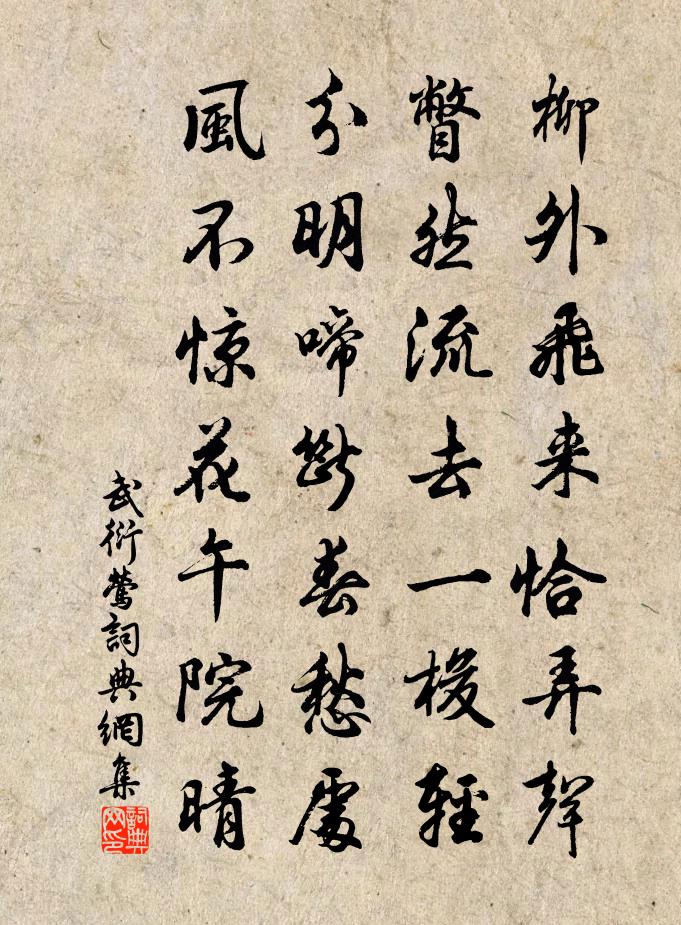 柳外飛来恰弄聲
瞥然流去一梭輕
分明啼斷春愁處
風不惊花午院晴
武衍鶯詞典網集
詞典網印